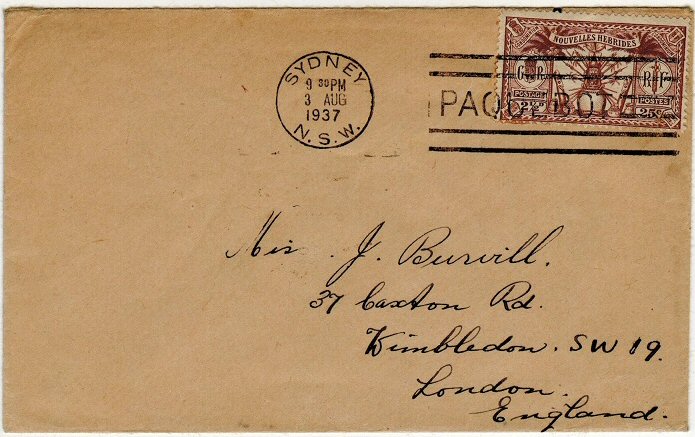 SYDNEY
9 30PM
3 AUG
1937
N.S.W.
PAQUEBOT
NOUVELLES HEBRIDES
G R
R F
POSTAGE
POSTES
2½d
25c
Miss J. Burvill.
37 Caxton Rd.
Wimbledon. SW 19.
London.
England.